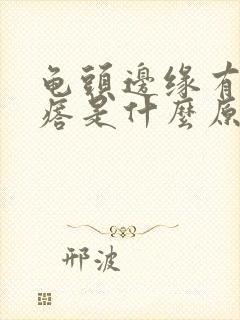 龟頭邊缘有
痞是什麼原
邢波